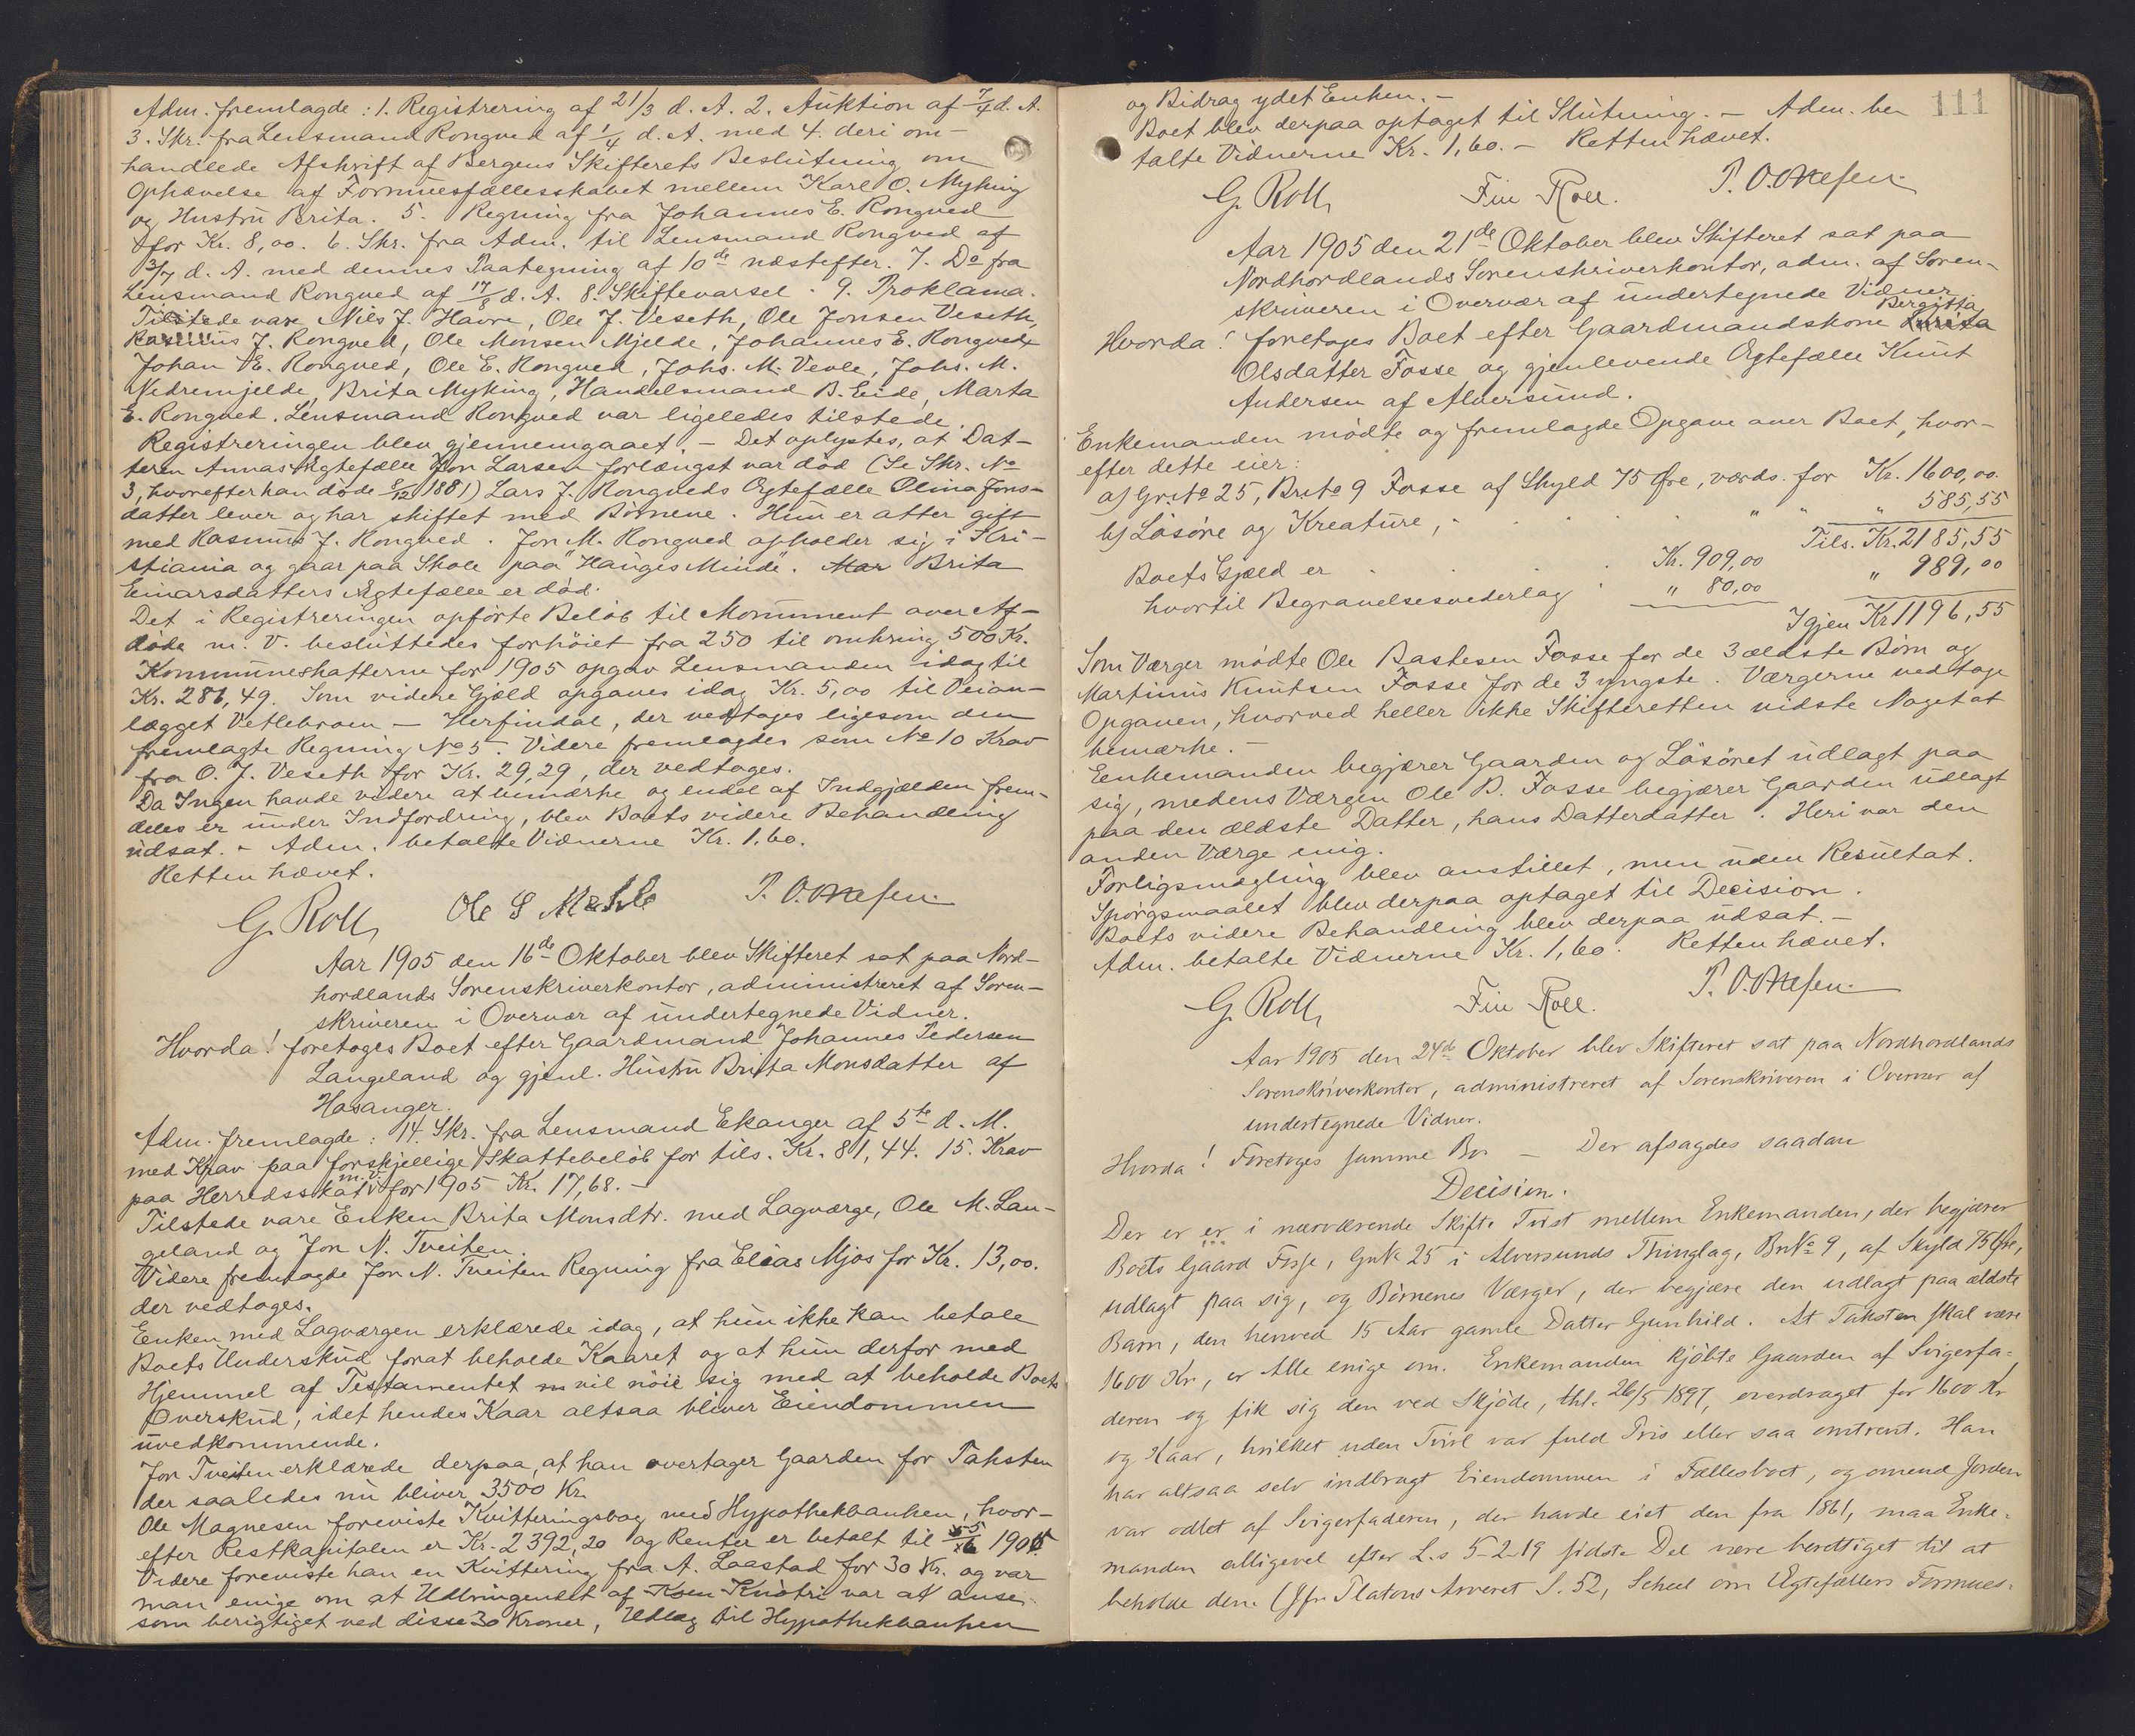 Adm. fremlagde: 1. Registrering af 21/3 d. A. 2. Auktion af 7/4 d. A.
3. Skr. fra Lensmand Rongved af 1/4 d. A. med 4. deri om-
handlede Afskrift af Bergens Skifterets Beslutning om
Ophævelse af Formuesfællesskabet mellem Karl O. Myking
og Hustru Brita. 5. Regning fra Johannes E. Rongved
for Kr. 8,00. 6. Skr. fra Adm. til Lensmand Rongved af
3/7 d. A. med dennes Paategning af 10de næstefter. 7. Do fra
Lensmand Rongved af 17/8 d. A. 8. Skiftevarsel. 9. Proklama.
Tilstede vare Nils J. Havre, Ole J. Veseth, Ole Jonsen Veseth,
Rasmus J. Rongved, Ole Monsen Mjelde, Johannes E. Rongved,
Johan E. Rongved, Ole E. Rongved, Johs. M. Vevle, Johs. M.
Nedremjelde, Brita Myking, Handelsmand B. Eide, Marta
E. Rongved. Lensmand Rongved var ligeledes tilstede.
Registreringen blev gjennemgaaet. – Det oplystes, at Dat-
teren Annas Ægtefælle Jon Larsen forlængst var død (Se Skr. No
3, hvorefter han døde 8/12 1881) Lars J. Rongveds Ægtefælle Olina Jons-
datter lever og har skiftet med Børnene. Hun er atter gift
med Rasmus J. Rongved. Jon M. Rongved opholder sig i Kri-
stiania og gaar paa Skole paa "Hauges Minde". Mar Brita
Einarsdatters Ægtefælle er død.
Det i Registreringen opførte Beløb til Monument over Af-
døde m. V. besluttedes forhøiet fra 250 til omkring 500 Kr.
Kommuneskatterne for 1905 opgav Lensmanden idag til
Kr. 281,49. Som videre Gjæld opgaves idag Kr. 5,00 til Veian-
lægget Vetlebroen – Herfindal, der vedtages ligesom den
fremlagte Regning No 5. Videre fremlagdes som No 10 Krav
fra O. J. Veseth for Kr. 29,29, der vedtages.
Da Ingen havde videre at bemærke og endel af Indgjælden frem-
deles er under Indfordring, blev Boets videre Behandling
udsat. – Adm. betalte Vidnerne Kr. 1,60.
Retten hævet.
G. Roll Ole S Mæhle P. O. Onesen
Aar 1905 den 16de Oktober blev Skifteret sat paa Nord-
hordlands Sorenskriverkontor, administreret af Soren-
skriveren i Overvær af undertegnede Vidner.
Hvorda! foretoges Boet efter Gaardmand Johannes Pedersen
Langeland og gjenl. Hustru Brita Monsdatter af
Hosanger.
Adm. fremlagde: 14. Skr. fra Lensmand Ekanger af 5te d. M.
med Krav paa forskjellige Skattebeløb for tils. Kr. 81,44. 15. Krav
paa Herredsskat m. v. for 1905 Kr. 17,68. –
Tilstede vare Enken Brita Monsdtr. med Lagværge, Ole M. Lan-
geland og Jon N. Tveiten.
Videre fremlagde Jon N. Tveiten Regning fra Elias Mjøs for Kr. 13,00.
der vedtoges.
Enken med Lagværgen erklærede idag, at hun ikke kan betale
Boets Underskud forat beholde Kaaret og at hun derfor med
Hjemmel af Testamentet vil nøie sig med at beholde Boets
Overskud, idet hendes Kaar altsaa bliver Eiendommen
uvedkommende.
Jon Tveiten erklærede derpaa, at han overtager Gaarden for Taksten
der saaledes nu bliver 3500 Kr.
Ole Magnesen foreviste Kvitteringsbog med Hypothekbanken, hvor-
efter Restkapitalen er Kr. 2392,20 og Renter er betalt til 1905
Videre foreviste han en Kvittering fra A. Laastad for 30 Kr. og var
man enige om at af var at anse
som berigtiget ved disse 30 Kroner, Udlæg til Hypothekbanken
111
og Bidrag ydet Enken. –
Boet blev derpaa optaget til Slutning. – Adm. be-
talte Vidnerne Kr. 1,60. – Retten hævet.
G. Roll Fin Roll. P. O. Onesen
Aar 1905 den 21de Oktober blev Skifteret sat paa
Nordhordlands Sorenskriverkontor, adm. af Soren-
skriveren i Overvær af undertegnede Vidner.
Hvorda! foretoges Boet efter Gaardmandskone Bergitta
Olsdatter Fosse og gjenlevende Ægtefælle Knut
Andersen af Alversund.
Enkemanden mødte og fremlagde Opgave over Boet, hvor-
efter dette eier:
a) Grno 25, Brno 9 Fosse af Skyld 75 Øre, værds. for Kr. 1600,00.
b) Løsøre og Kreature, " " " 585,55
Tils. Kr. 2185,55
Boets Gjæld er Kr. 909,00
hvortil Begravelsesvederlag " 80,00 " 989,00
Igjen Kr. 1196,55
Som Værger mødte Ole Bastesen Fosse for de 3 ældste Børn og
Martinus Knutsen Fosse for de 3 yngste. Værgerne vedtoge
Opgaven, hvorved heller ikke Skifteretten vidste Noget at
bemærke. –
Eenkemanden begjærer Gaarden og Løsøret udlagt paa
sig, medens Værgen Ole B. Fosse begjærer Gaarden udlagt
paa den ældste Datter, hans Datterdatter. Heri var den
anden Værge enig.
Forligsmægling blev anstillet, men uden Resultat.
Spørgsmaalet blev derpaa optaget til Decision.
Boets videre Behandling blev derpaa udsat. –
Adm. betalte Vidnerne Kr. 1,60. Retten hævet.
G. Roll Fin Roll. P. O. Onesen
Aar 1905 den 24de Oktober blev Skifteret sat paa Nordhordlands
Sorenskriverkontor, administreret af Sorenskriveren i Overvær af
undertegnede Vidner.
Hvorda! Foretoges samme Bo – Der afsagdes saadan
Decision.
Der er er i nærværende Skifte Tvist mellem Enkemanden, der begjærer
Boets Gaard Fosse, GnNo 25 i Alversunds Thinglag, BnNo 9, af Skyld 75 Øre,
udlagt paa sig, og Børnenes Værger, der begjære den udlagt paa ældste
Barn, den henved 15 Aar gamle Datter Gunhild. At Taksten skal være
1600 Kr, er Alle enige om. Enkemanden kjøbte Gaarden af Svigerfa-
deren og fik sig den ved Skjøde, thl. 26/5 1897, overdraget for 1600 Kr
og Kaar, hvilket uden Tvivl var fuld Pris eller saa omtrent. Han
har altsaa selv indbragt Eiendommen i Fællesboet, og omend Jorden
var odlet af Svigerfaderen, der havde eiet den fra 1861, maa Enke-
manden alligevel efter L.s 5-2-19 sidste Del være berettiget til at
beholde den. (Jfr. Platous Arveret S. 52, Scheel om Ægtefællers Formues-